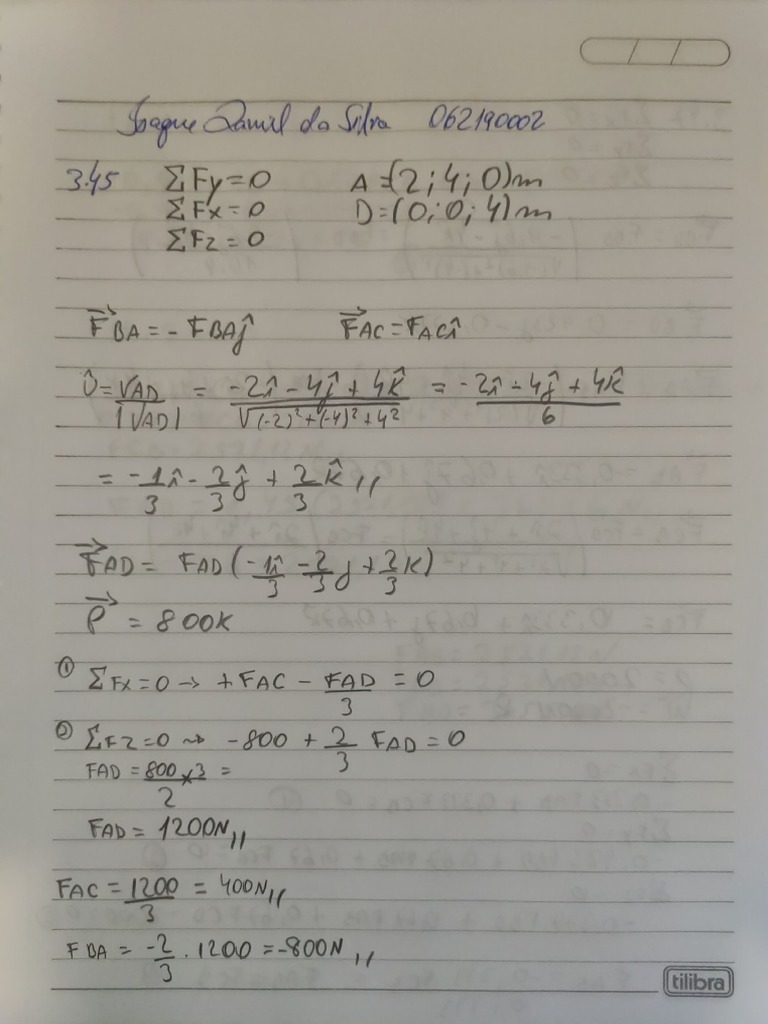 da Silva 062190002
3.45 ΣFy=0 A=(2;4;0)m
ΣFx=0 D=(0;0;4)m
ΣFz=0
F⃗BA = - FBAĵ F⃗AC = FACî
Û = VAD/|VAD| = (-2î - 4ĵ + 4k̂)/√((-2)²+(-4)²+4²) = (-2î - 4ĵ + 4k̂)/6
= -1/3 î - 2/3 ĵ + 2/3 k̂ //
F⃗AD = FAD (-1î/3 - 2/3 j + 2/3 k)
P⃗ = 800K
① ΣFx=0 → +FAC - FAD/3 = 0
② ΣFz=0 → -800 + 2/3 FAD = 0
FAD = 800/2 × 3 =
FAD = 1200N //
FAC = 1200/3 = 400N //
FBA = -2/3 . 1200 = -800N //
tilibra